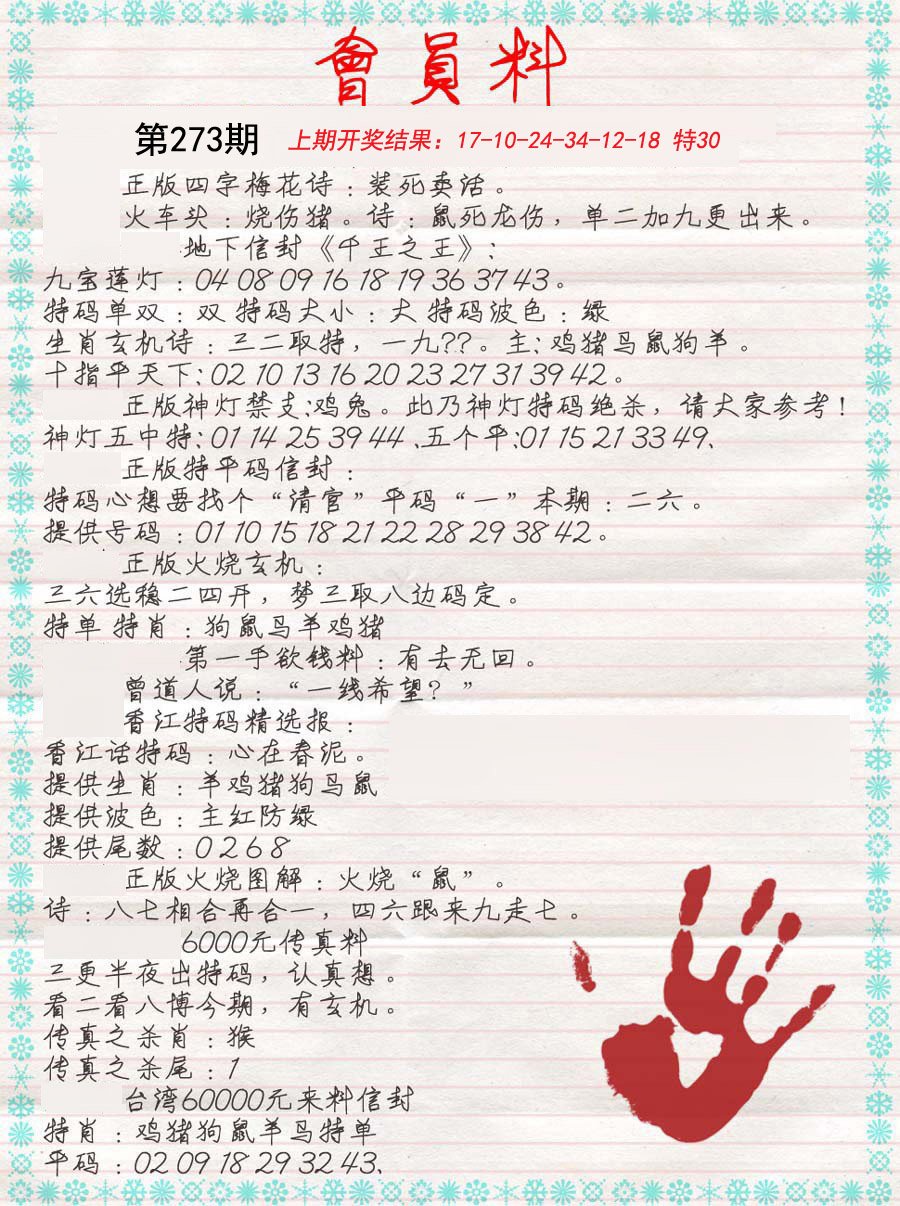 會員料
第273期 上期开奖结果：17-10-24-34-12-18 特30
正版四字梅花诗：装死卖活。
火车头：烧伤猪。诗：鼠死龙伤，单二加九更出来。
地下信封《千王之王》：
九宝莲灯：04 08 09 16 18 19 36 37 43。
特码单双：双 特码大小：大 特码波色：绿
生肖玄机诗：三二取特，一九??。主:鸡猪马鼠狗羊。
十指平天下:02 10 13 16 20 23 27 31 39 42。
正版神灯禁支:鸡兔。此乃神灯特码绝杀，请大家参考！
神灯五中特:01 14 25 39 44、五个平:01 15 21 33 49、
正版特平码信封：
特码心想要找个“清官”平码“一”本期：二六。
提供号码：01 10 15 18 21 22 28 29 38 42。
正版火烧玄机：
三六选稳二四开，梦三取八边码定。
特单 特肖：狗鼠马羊鸡猪
第一手欲钱料：有去无回。
曾道人说：“一线希望？”
香江特码精选报：
香江话特码：心在春泥。
提供生肖：羊鸡猪狗马鼠
提供波色：主红防绿
提供尾数：0 2 6 8
正版火烧图解：火烧“鼠”。
诗：八七相合再合一，四六跟来九走七。
6000元传真料
三更半夜出特码，认真想。
看二看八博今期，有玄机。
传真之杀肖：猴
传真之杀尾：1
台湾60000元来料信封
特肖：鸡猪狗鼠羊马特单
平码：02 09 18 29 32 43、